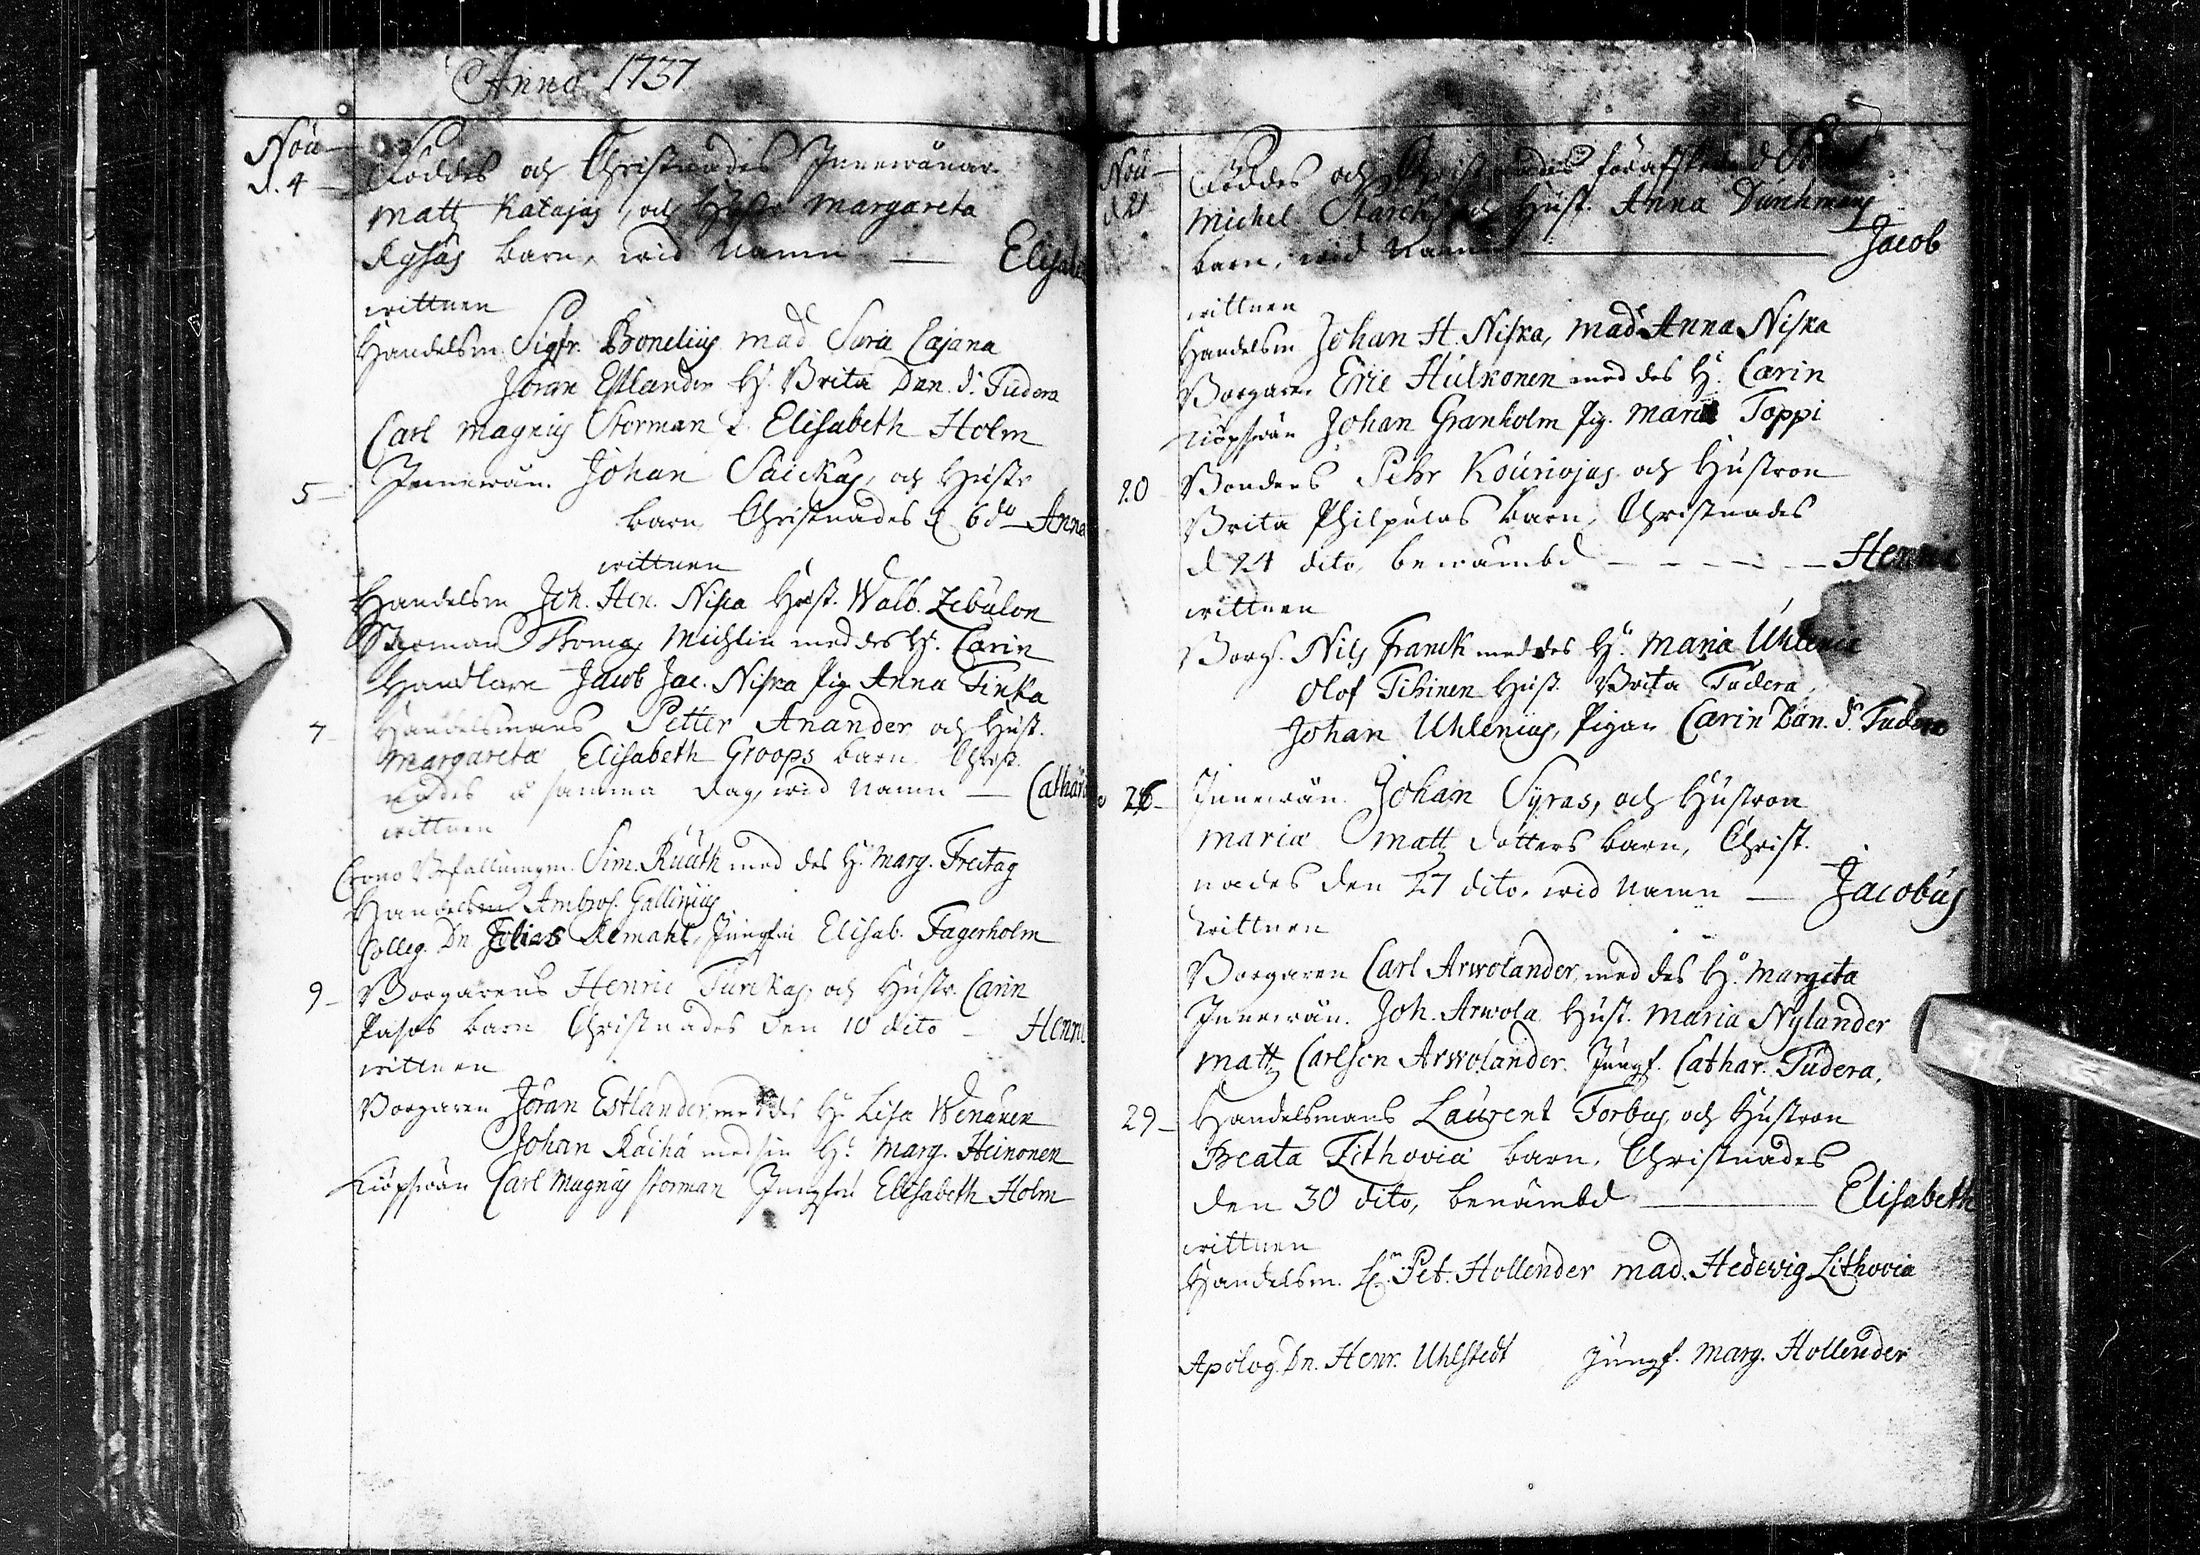 Anno 1737
Nov
d. 4 Föddes och Christnades Innewånar
Matt Katajas, och Hustr Margareta
barn, wid Namn — Elisabe
wittnen
Handelsm. Sigfr. Bonelius mad Sara Cajana
Jöran Estlander H. Brita Dan. d. Tudera
Carl Magnus Storman Elisabeth Holm
5 Innewån. Johan Saickas, och Hustr
barn Christnades d 6 d:o Anna
wittnen
Handelsm Joh. Hen. Niska Hust. Walb. Zebulon
Thomas Michlin med des H. Carin
Handlare Jacob Jac. Niska Pig. Anna Tinka
7 Handelsmans Petter Anander och Hust.
Margareta Elisabeth Groops barn Christ-
nades å samma dag, wid Namn — Catharin
wittnen
Crono Befallningsm. Sim. Ruuth med des H. Marg. Freitag
Handelsm Ambros. Gallenius
Colleg. Dn Elias Alemahl, Jungfru Elisab. Fagerholm
9 Borgarens Henric Turckas, och Hustr. Carin
Pasos barn Christnades den 10 dito — Henri
wittnen
Borgaren Jöran Estlander, med des H. Lisa Wenänen
Johan Räihä med sin H. Marg. Heinonen
Kiöpswän Carl Magnus Storman Jungfru Elisabeth Holm
Nov
d 21 Föddes och Christnades
Michel Starcks och Hust. Anna Dunckmans
barn, wid Namn — Jacob
wittnen
Handelsm Johan H. Niska, mad. Anna Niska
Borgare Eric Hulkonen med des H. Carin
Kiöpswän Johan Granholm Pig. Maria Toppi
20 Bondens Pehr Kouriojas och Hustron
Brita Philpulas barn, Christnades
d 24 dito, benämbd — Henric
wittnen
Borg. Nils Franck med des H. Maria Uhlenia
Olof Tihinen Hust. Brita Tudera,
Johan Uhlenius, Pigan Carin Dan. d. Tudera
26 Innewån. Johan Syras, och Hustron
Maria Matt dotters barn, Christ-
nades den 27 dito, wid Namn — Jacobus
wittnen
Borgaren Carl Arwolander, med des H. Margeta
Innewån. Joh. Arwola Hust. Maria Nylander
Matt Carlson Arwolander. Jungf. Cathar. Tudera.
29 Handelsmans Laurent Forbus, och Hustron
Beata Lithovia barn, Christnades
den 30 dito, benämbd — Elisabeth
wittnen
Handelsm. Pet. Hollender mad. Hedevig Lithovia
Apolog. Dn. Henr. Uhlstedt Jungf. Marg. Hollender